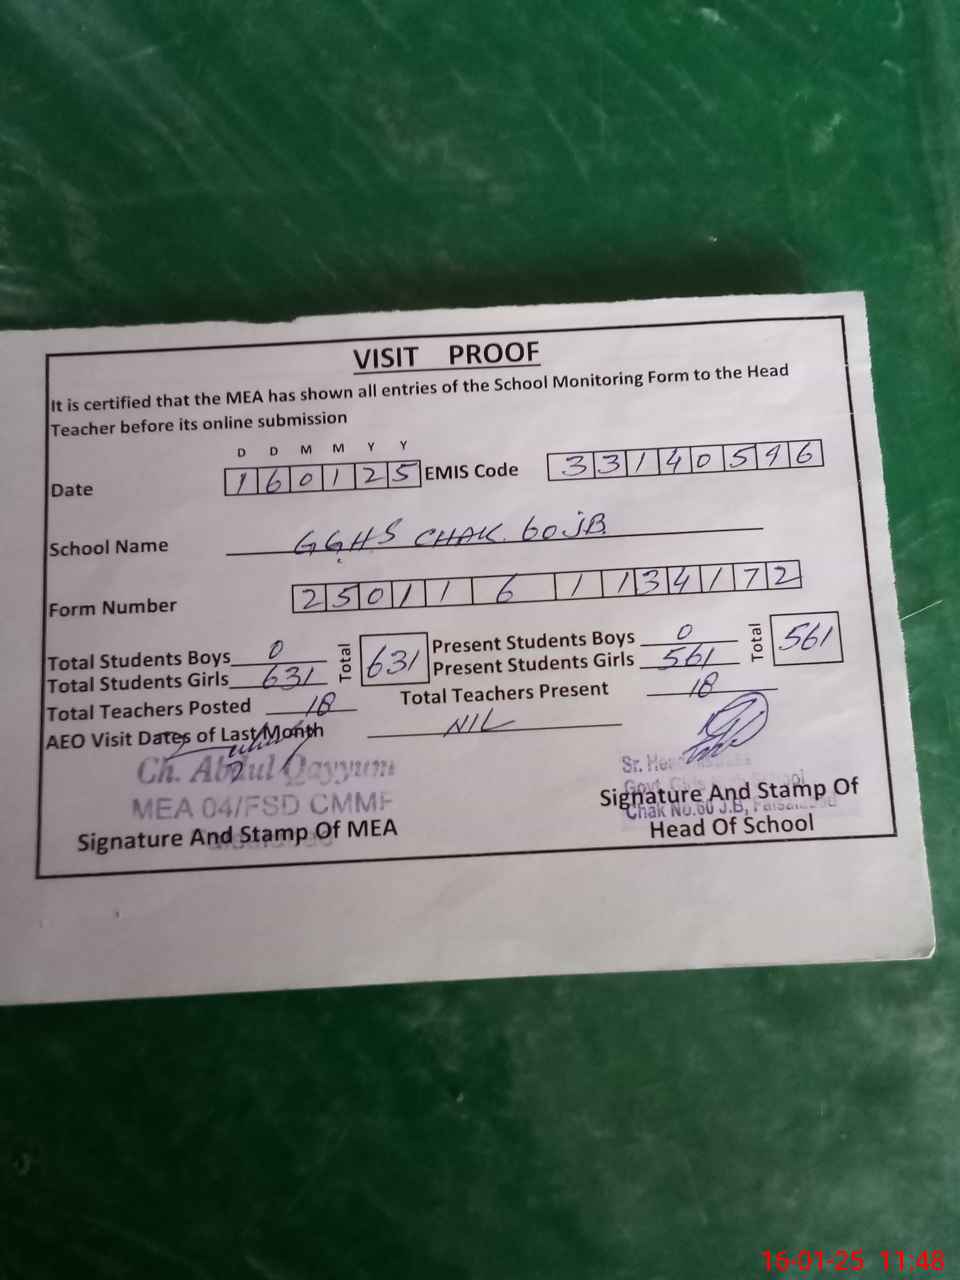 VISIT PROOF
It is certified that the MEA has shown all entries of the School Monitoring Form to the Head
Teacher before its online submission
D D M M Y Y
Date 160125 EMIS Code 33140596
School Name GGHS CHAK 60 JB
Form Number 25011 6 1134172
Total Students Boys 0 Total 631 Present Students Boys 0 Total 561
Total Students Girls 631 Present Students Girls 561
Total Teachers Posted 18 Total Teachers Present 18
AEO Visit Dates of Last Month NIL
Ch. Abdul Qayyum
MEA 04/FSD CMMF
Signature And Stamp Of MEA
Sr.
Govt. School
Chak No.60 J.B,
Signature And Stamp Of
Head Of School
16-01-25 11:48